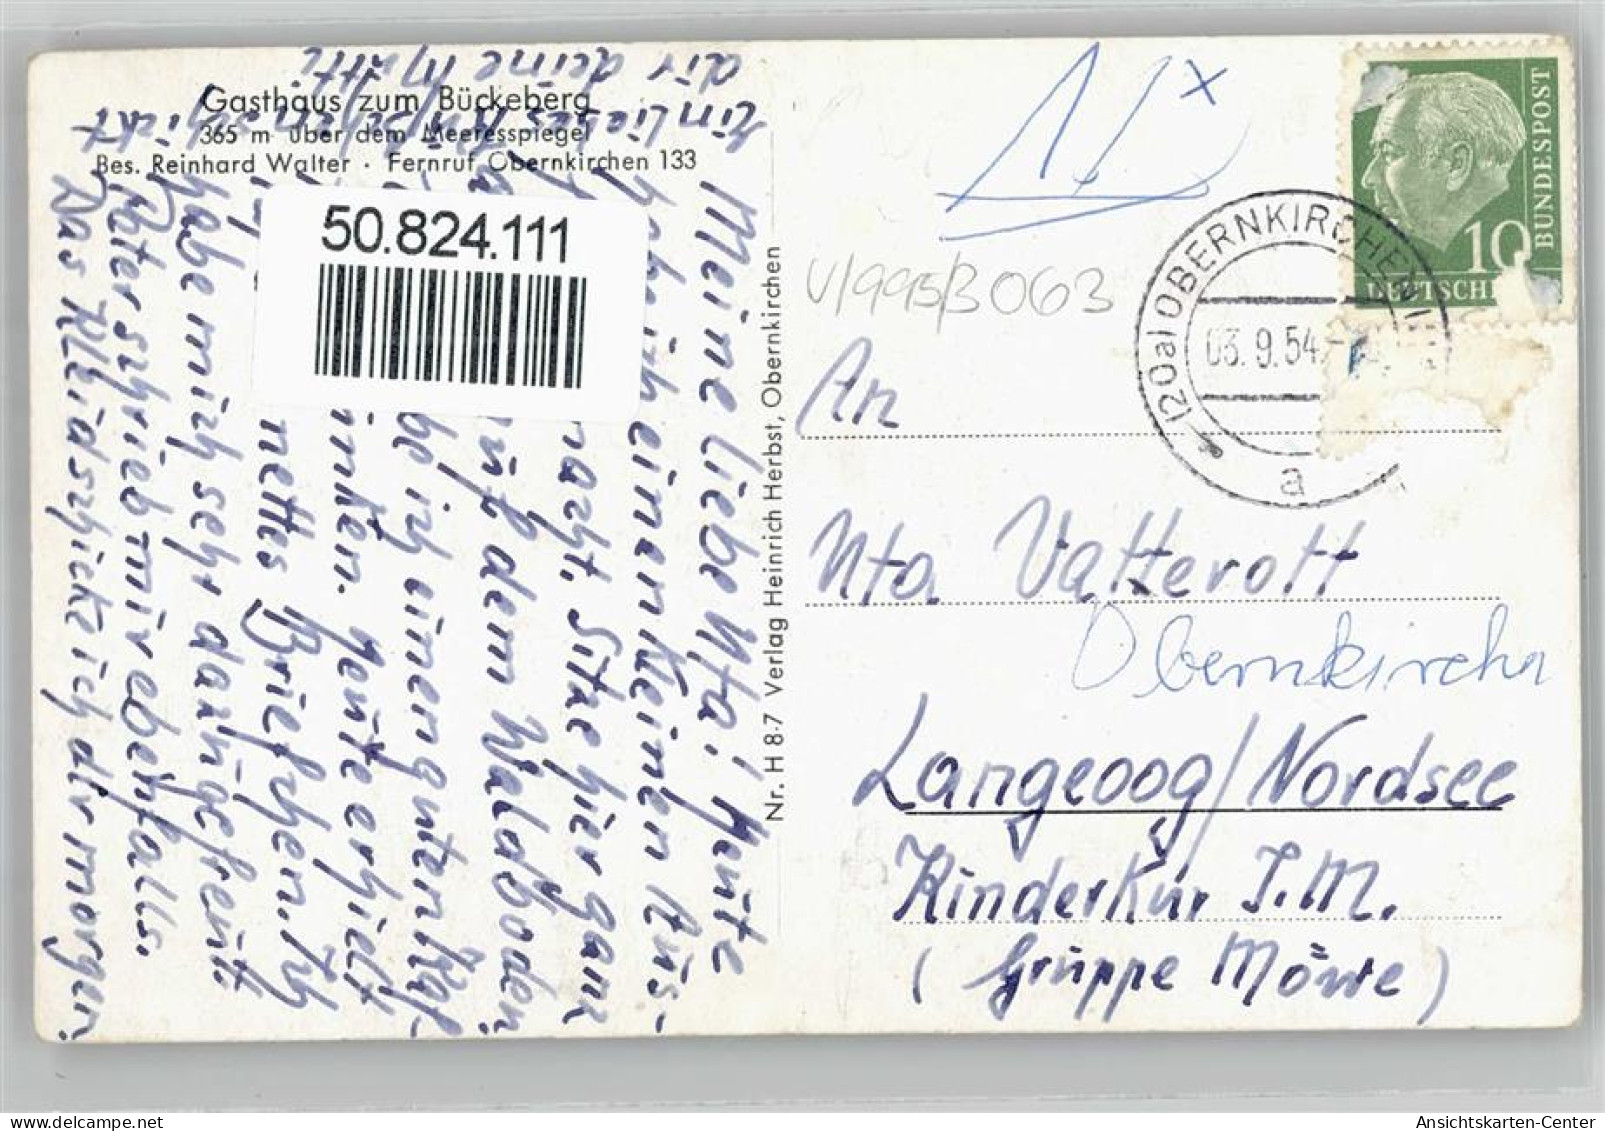 Gasthaus zum Bückeberg
365 m über dem Meeresspiegel
Bes. Reinhard Walter · Fernruf Obernkirchen 133
50.824.111
Meine liebe Uta! Heute
habe ich einen kleinen Aus-
macht. Sitze hier ganz
auf dem Waldboden
be ich einen guten Kaf-
inken. Heute erhielt
nettes Briefchen. Ich
habe mich sehr darüber gefreut.
Vater schrieb mir ebenfalls.
Das Kleid schicke ich dir morgen.
ein liebes
dir deine Mutti
Nr. H 8-7 Verlag Heinrich Herbst, Obernkirchen
V/995/3063
(20a) OBERNKIRCHEN
03.9.54
a
BUNDESPOST
10
DEUTSCHE
An
Uta Vatterott
Obernkirchen
Langeoog/Nordsee
Kinderkur I.M.
(Gruppe Möwe)
Ansichtskarten-Center